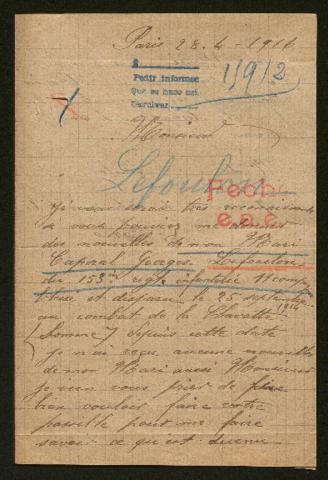 Paris 28-4-1916
S
Pedir informes
Que se hace asi
Derniver
1/912
Monsieur
Lefoulon
Fecha
e.n.c.
Je vous serais très reconnaissante
si vous pouviez me donner
des nouvelles de mon Mari
Caporal Georges Lefoulon
du 153me regte infanterie 11 comp
et disparu le 25 septembre
1914
au combat de la
(Somme) depuis cette date
je n'ai reçu aucune nouvelles
de mon Mari aussi Monsieur
je viens vous prier de
bien vouloir faire votre
possible pour me faire
savoir ce qu'il est devenu